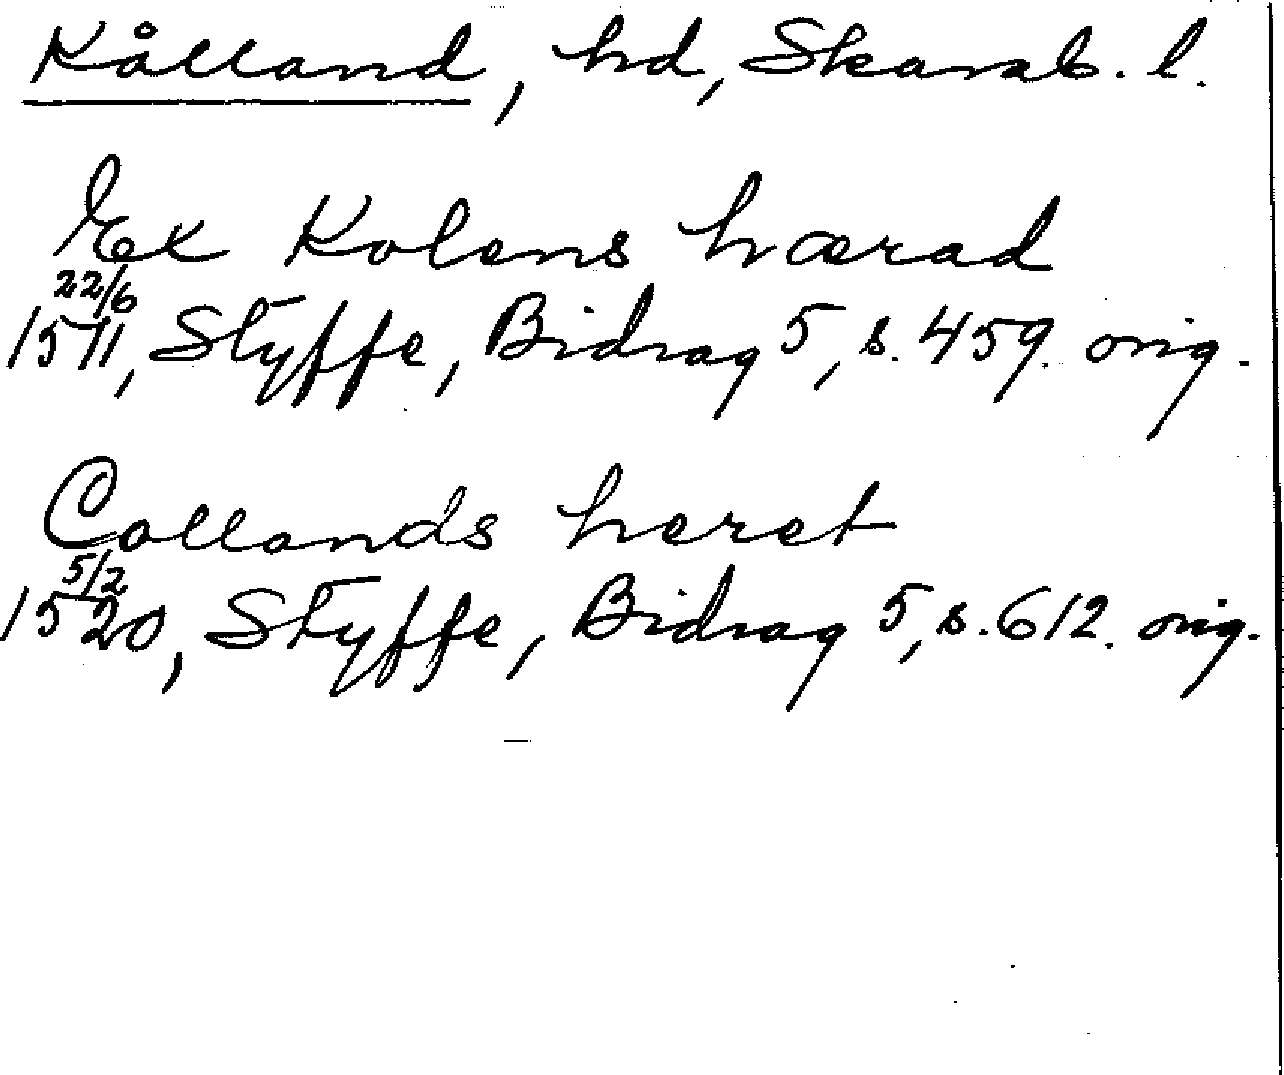 Kålland, hd, Skarab. l.
Ex Kolens hærad
22/6
1511, Styffe, Bidrag 5, s. 459. orig.
Collands heret
5/2
1520, Styffe, Bidrag 5, s. 612. orig.